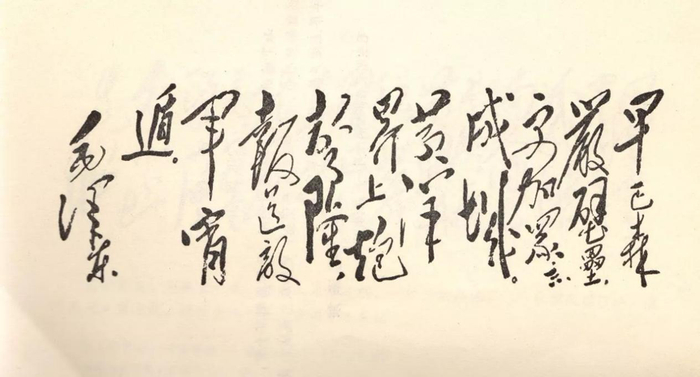 早已森
嚴壁壘,
更加眾志
成城。
黃洋
界上炮
聲隆,
報道敵
軍宵
遁.
毛澤東